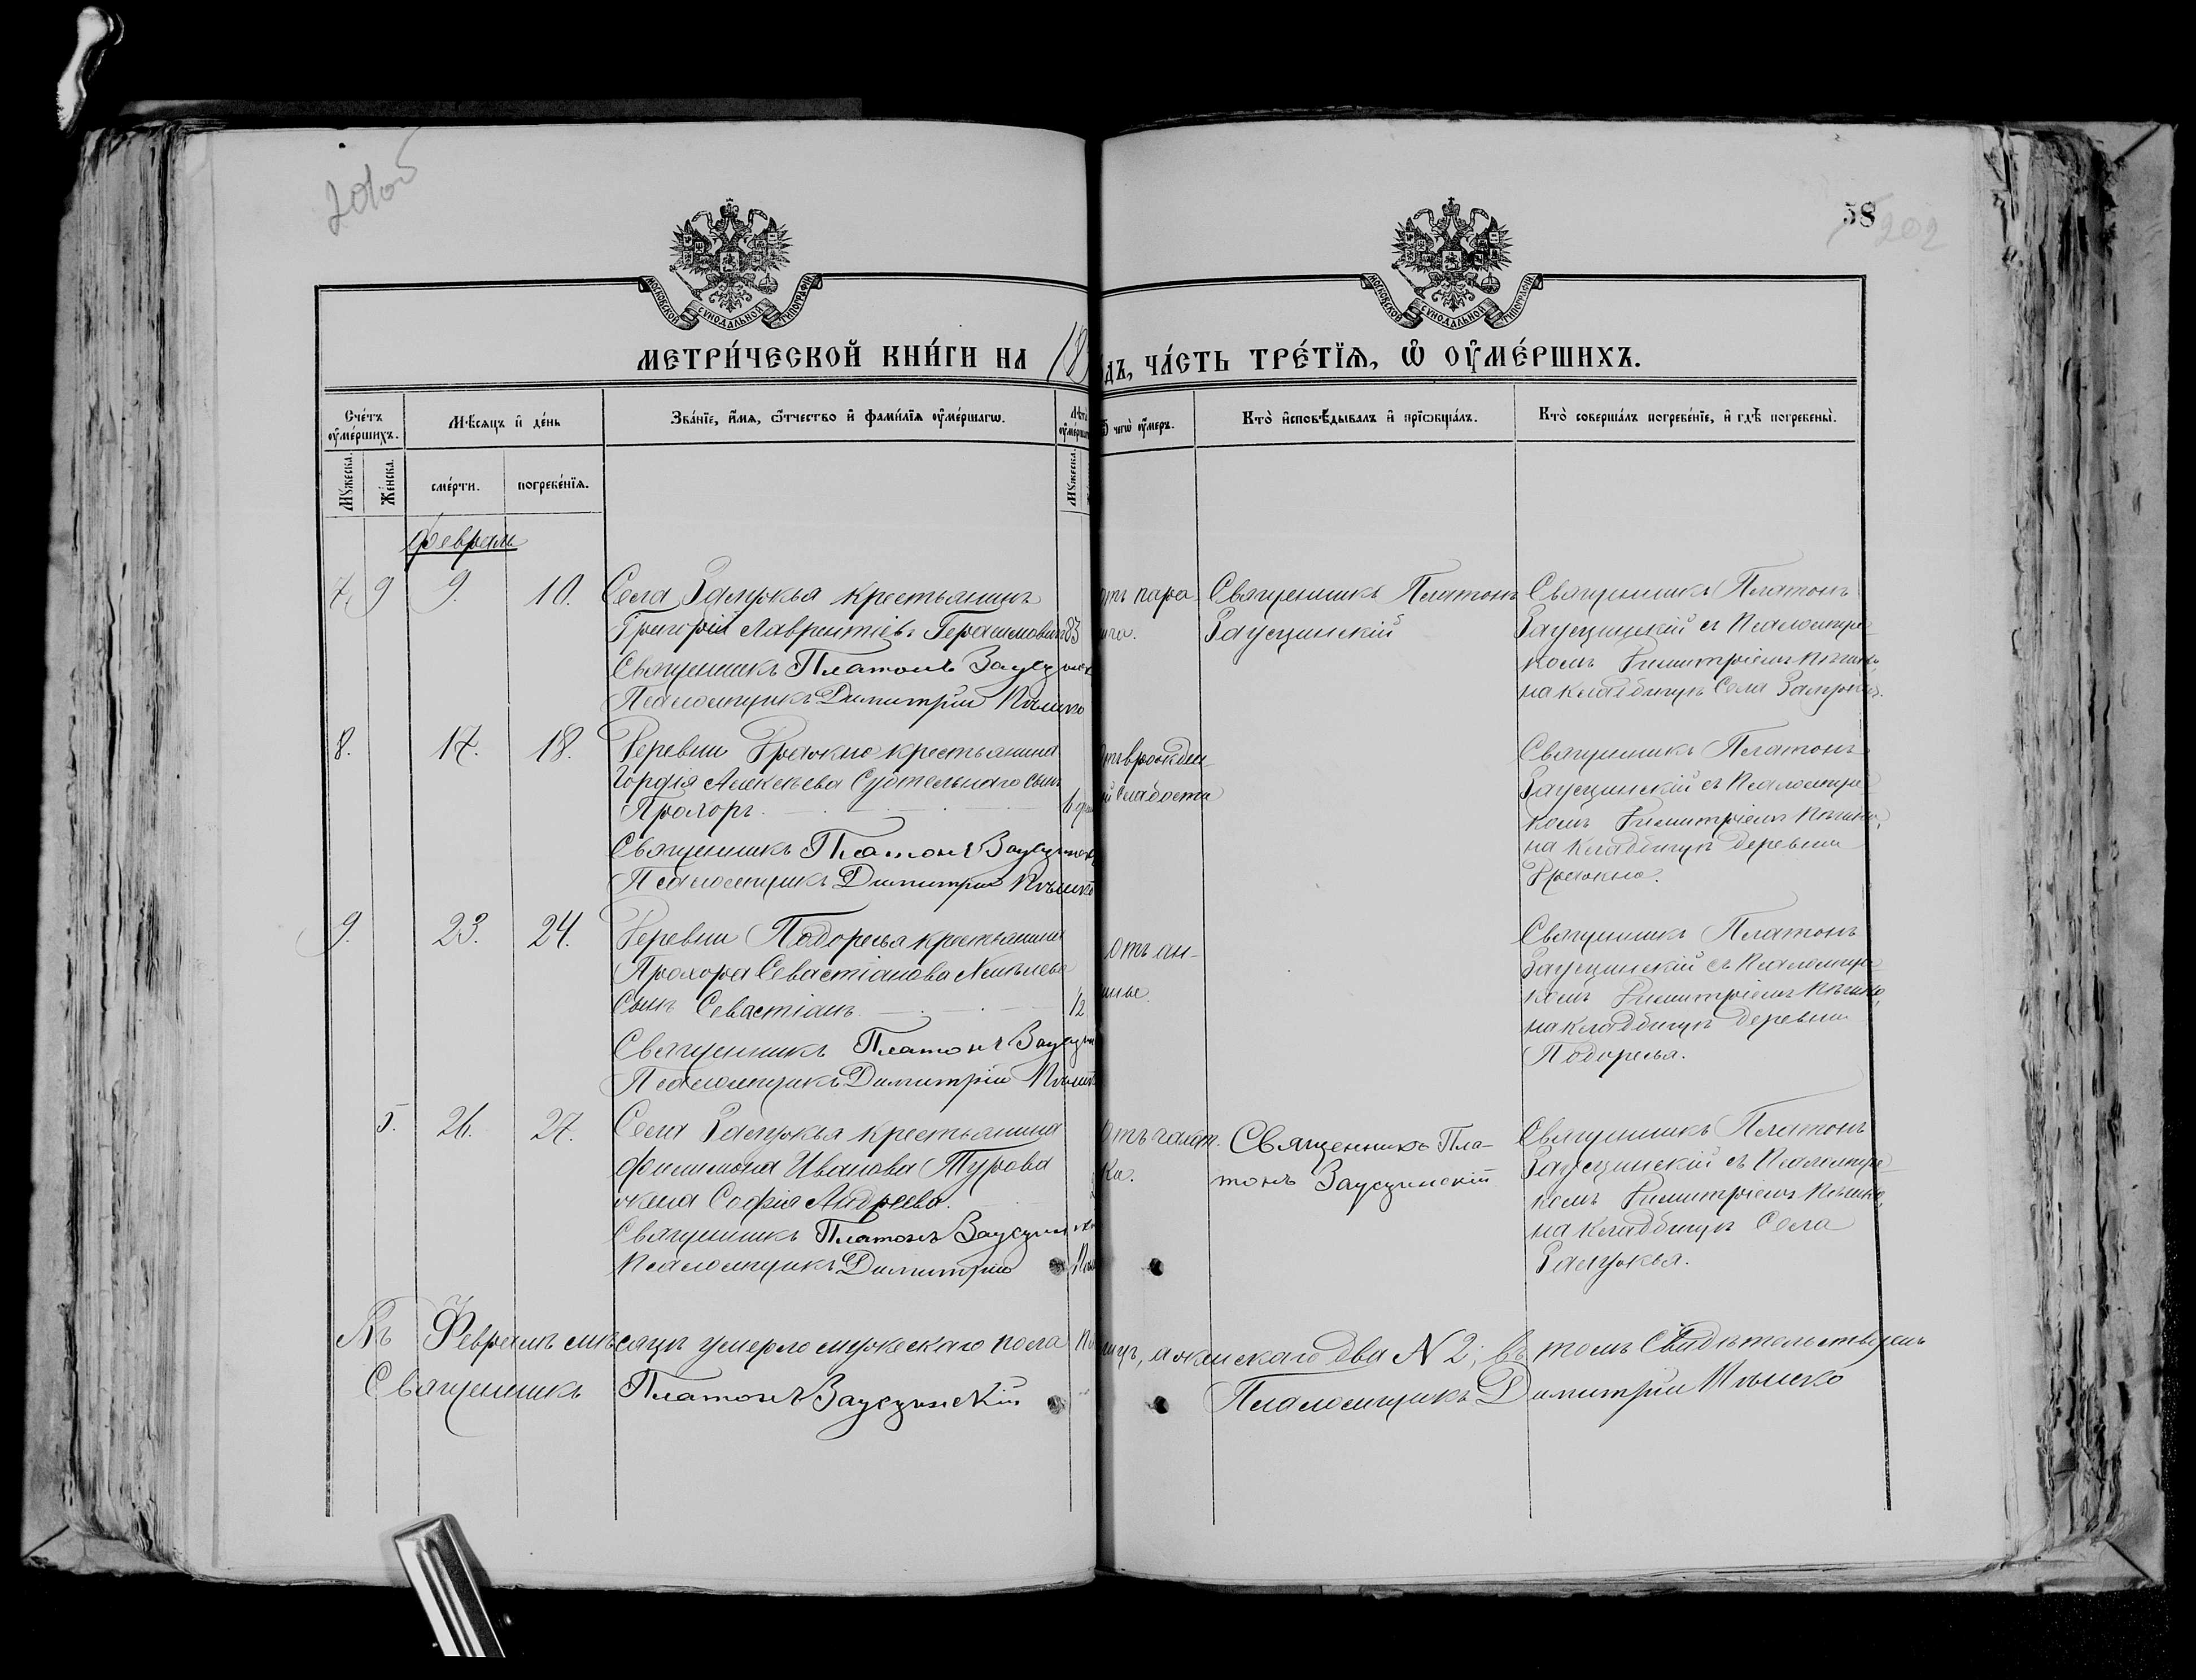 201об
58
202
МОСКОВСКОЙ СѴНОДАЛЬНОЙ ТИПОГРАФІИ
МОСКОВСКОЙ СѴНОДАЛЬНОЙ ТИПОГРАФІИ
МЕТРИ́ЧЕСКОЙ КНИ́ГИ НА 18
дъ, ЧА́СТЬ ТРЕ́ТЇѦ, Ѽ ОУ҆МЕ́РШИХЪ.
Сче́тъ оу҆ме́ршихъ.
Мѣ́сяцъ и҆ де́нь
Зва́нїе, и҆́мя, ѻ҆́тчество и҆ фами́лїя оу҆ме́ршагѡ.
Лѣта оу҆ме́ршаг
Ѿ чегѡ̀ оу҆́меръ.
Кто̀ и҆сповѣ́дывалъ и҆ прїѡбща́лъ.
Кто̀ соверша́лъ погребе́нїе, и҆ гдѣ̀ погребены̀.
Мꙋ́жеска.
Же́нска.
сме́рти.
погребе́нїя.
Мꙋ́жеска.
Февраль
7. 9 9. 10.
Села Залужья крестьянинъ
Григорій Лаврентіевъ Герасимович 83
Священникъ Платонъ Заусцинск
Псаломщикъ Димитрій
отъ пара
ича.
Священникъ Платонъ
Заусцинскій
Священникъ Платонъ
Заусцинскій съ Псаломщи
комъ Димитріемъ
на кладбищѣ Села Залужья.
8. 17. 18.
Деревни крестьянина
Гордѣя Алексѣева сынъ
Прохоръ.
Священникъ Платонъ Заусцинск
Псаломщикъ Димитрій
отъ врожден
й слабости
Священникъ Платонъ
Заусцинскій съ Псаломщи
комъ Димитріемъ
на кладбищѣ деревни
9. 23. 24.
Деревни Подоресья крестьянина
Прохора Севастіанова
сынъ Севастіанъ. 1/2
Священникъ Платонъ Заусцин
Псаломщикъ Димитрій
отъ ан-
гины.
Священникъ Платонъ
Заусцинскій съ Псаломщи
комъ Димитріемъ
на кладбищѣ деревни
Подоресья.
5. 26. 27.
Села Залужья крестьянина
Филимона Иванова Турова
жена Софія Андреева.
Священникъ Платонъ Заусцинск
Псаломщикъ Димитрій
ка.
Священникъ Пла-
тонъ Заусцинскій
Священникъ Платонъ
Заусцинскій съ Псаломщи
комъ Димитріемъ
на кладбищѣ Села
Залужья.
Въ Февралѣ мѣсяцѣ умерло мужескаго пола
а женскаго два № 2; въ томъ свидѣтельствуемъ
Священникъ Платонъ Заусцинскій
Псаломщикъ Димитрій